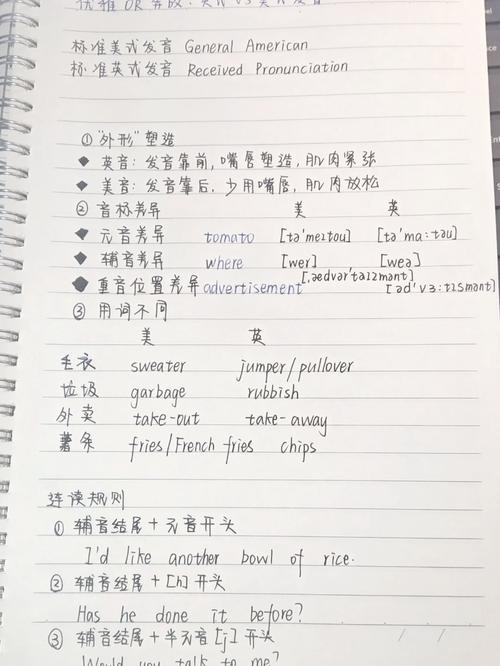 标准美式发音 General American
标准英式发音 Received Pronunciation
① "外形" 塑造
◆ 英音: 发音靠前, 嘴唇塑造, 肌肉紧张
◆ 美音: 发音靠后, 少用嘴唇, 肌肉放松
② 音标差异 美 英
◆ 元音差异 tomato [tə'meɪtou] [tə'ma:təu]
◆ 辅音差异 where [wer] [weə]
◆ 重音位置差异 advertisement [,ædvər'taɪzmənt] [əd'vɜ:tɪsmənt]
③ 用词不同
美 英
毛衣 sweater jumper/pullover
垃圾 garbage rubbish
外卖 take-out take-away
薯条 fries/French fries chips
连读规则
① 辅音结尾 + 元音开头
I'd like another bowl of rice.
② 辅音结尾 + [h] 开头
Has he done it before?
③ 辅音结尾 + 半元音 [j] 开头
Would you talk to me?